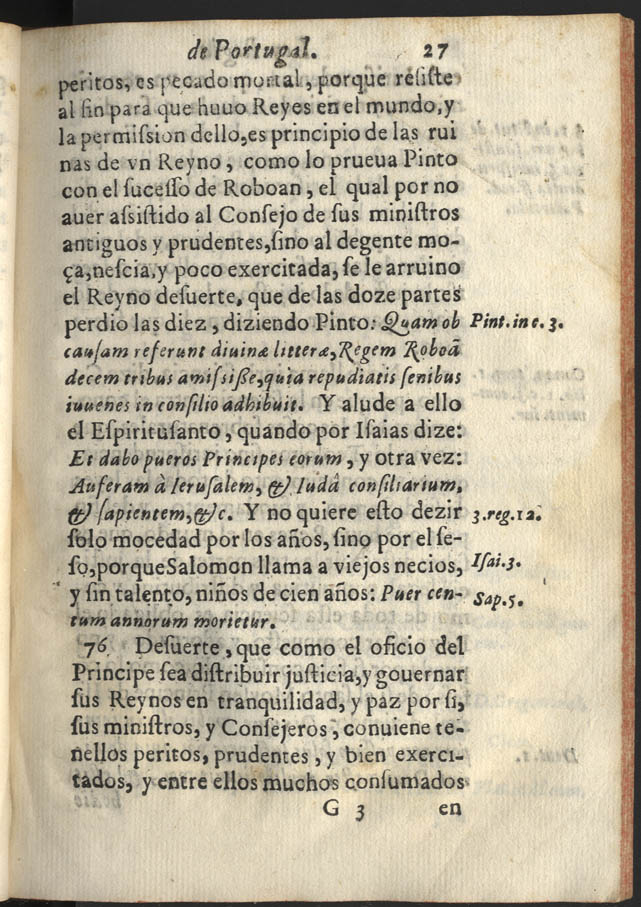 de Portugal. 27
peritos, es pecado mortal, porque resiste
al fin para que huuo Reyes en el mundo, y
la permiſsion dello, es principio de las rui
nas de vn Reyno, como lo prueua Pinto
con el ſuceſſo de Roboan, el qual por no
auer aſsiſtido al Conſejo de ſus miniſtros
antiguos y prudentes, ſino al degente mo-
ça, neſcia, y poco exercitada, ſe le arruino
el Reyno deſuerte, que de las doze partes
perdio las diez, diziendo Pinto: Quam ob
Pint. in c. 3.
cauſam referunt diuinæ litteræ, Regem Roboã
decem tribus amiſsiſſe, quia repudiatis ſenibus
iuuenes in conſilio adhibuit. Y alude a ello
el Eſpirituſanto, quando por Iſaias dize:
Et dabo pueros Principes eorum, y otra vez:
Auferam à Ieruſalem, & Iudâ conſiliarium,
& ſapientem, &c. Y no quiere eſto dezir
3. reg. 12.
ſolo mocedad por los años, ſino por el ſe-
ſo, porque Salomon llama a viejos necios,
Iſai. 3.
y ſin talento, niños de cien años: Puer cen-
Sap. 5.
tum annorum morietur.
76 Deſuerte, que como el oficio del
Principe ſea diſtribuir juſticia, y gouernar
ſus Reynos en tranquilidad, y paz por ſi,
ſus miniſtros, y Conſejeros, conuiene te-
nellos peritos, prudentes, y bien exerci-
tados, y entre ellos muchos conſumados
G 3 en